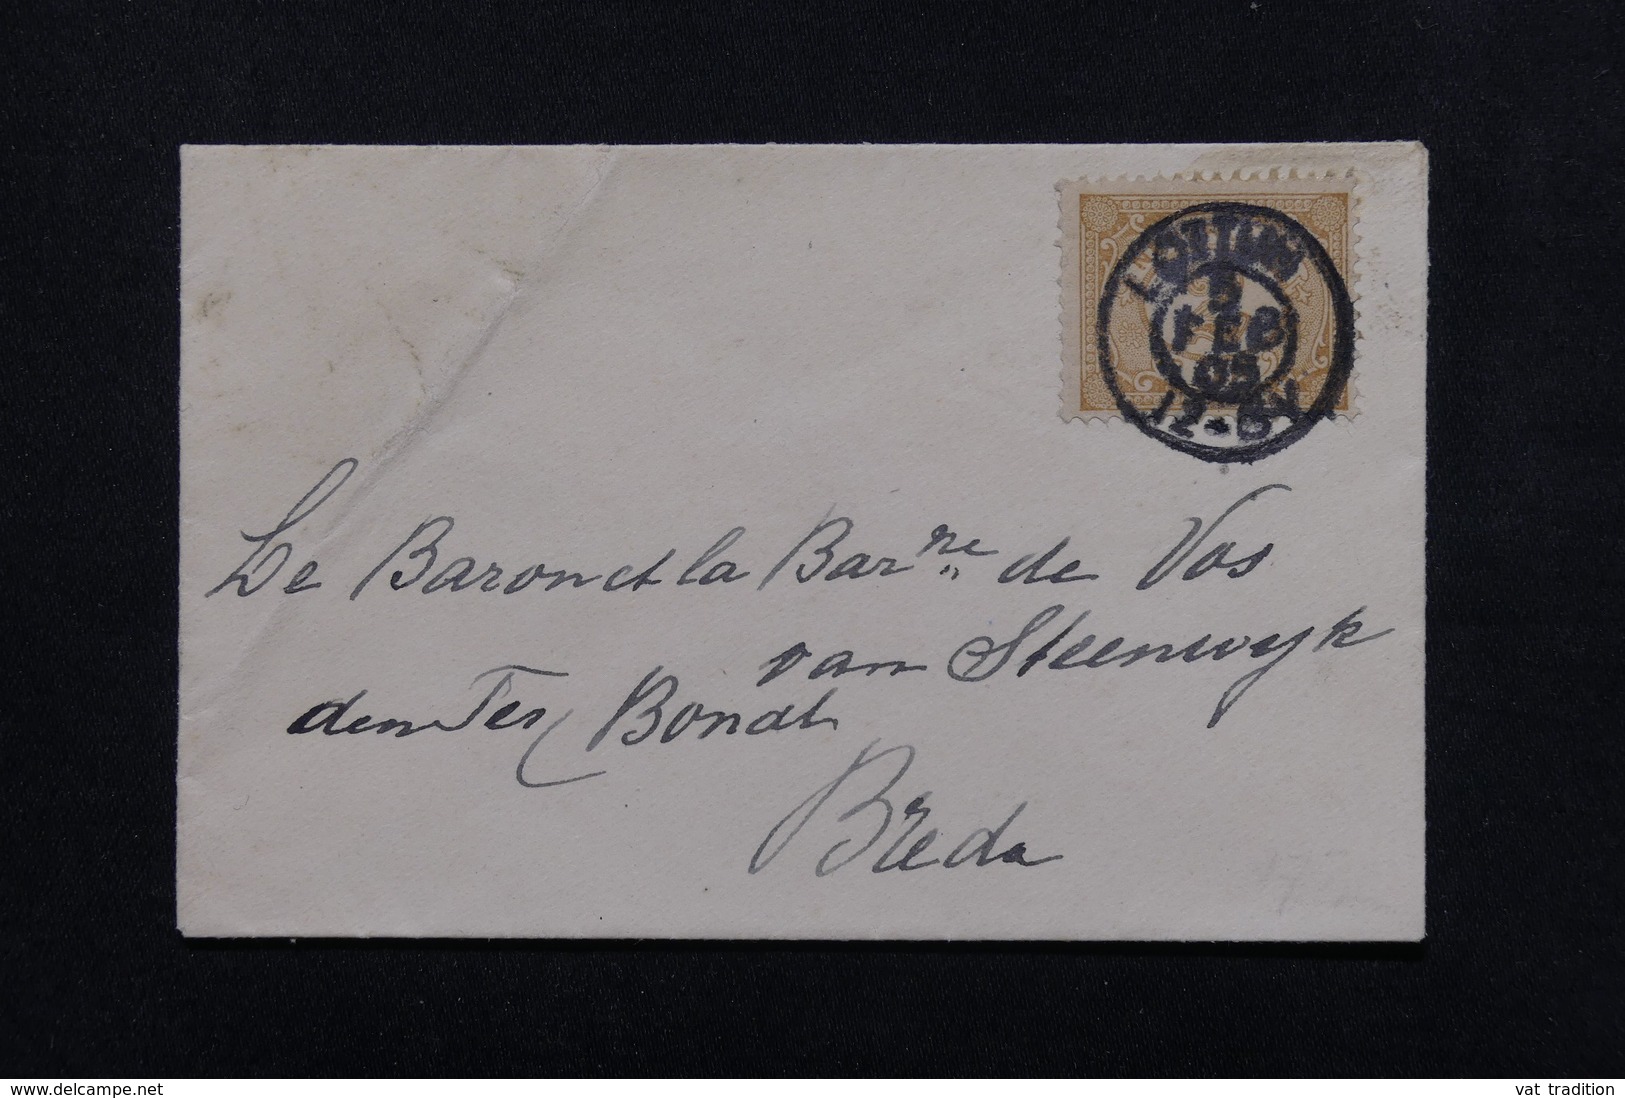 5
FEB
05
12-
Le Baron et la Bar^ne de Vos
van Steenwyk
den Tex Bondt
Breda
www.delcampe.net
vat tradition